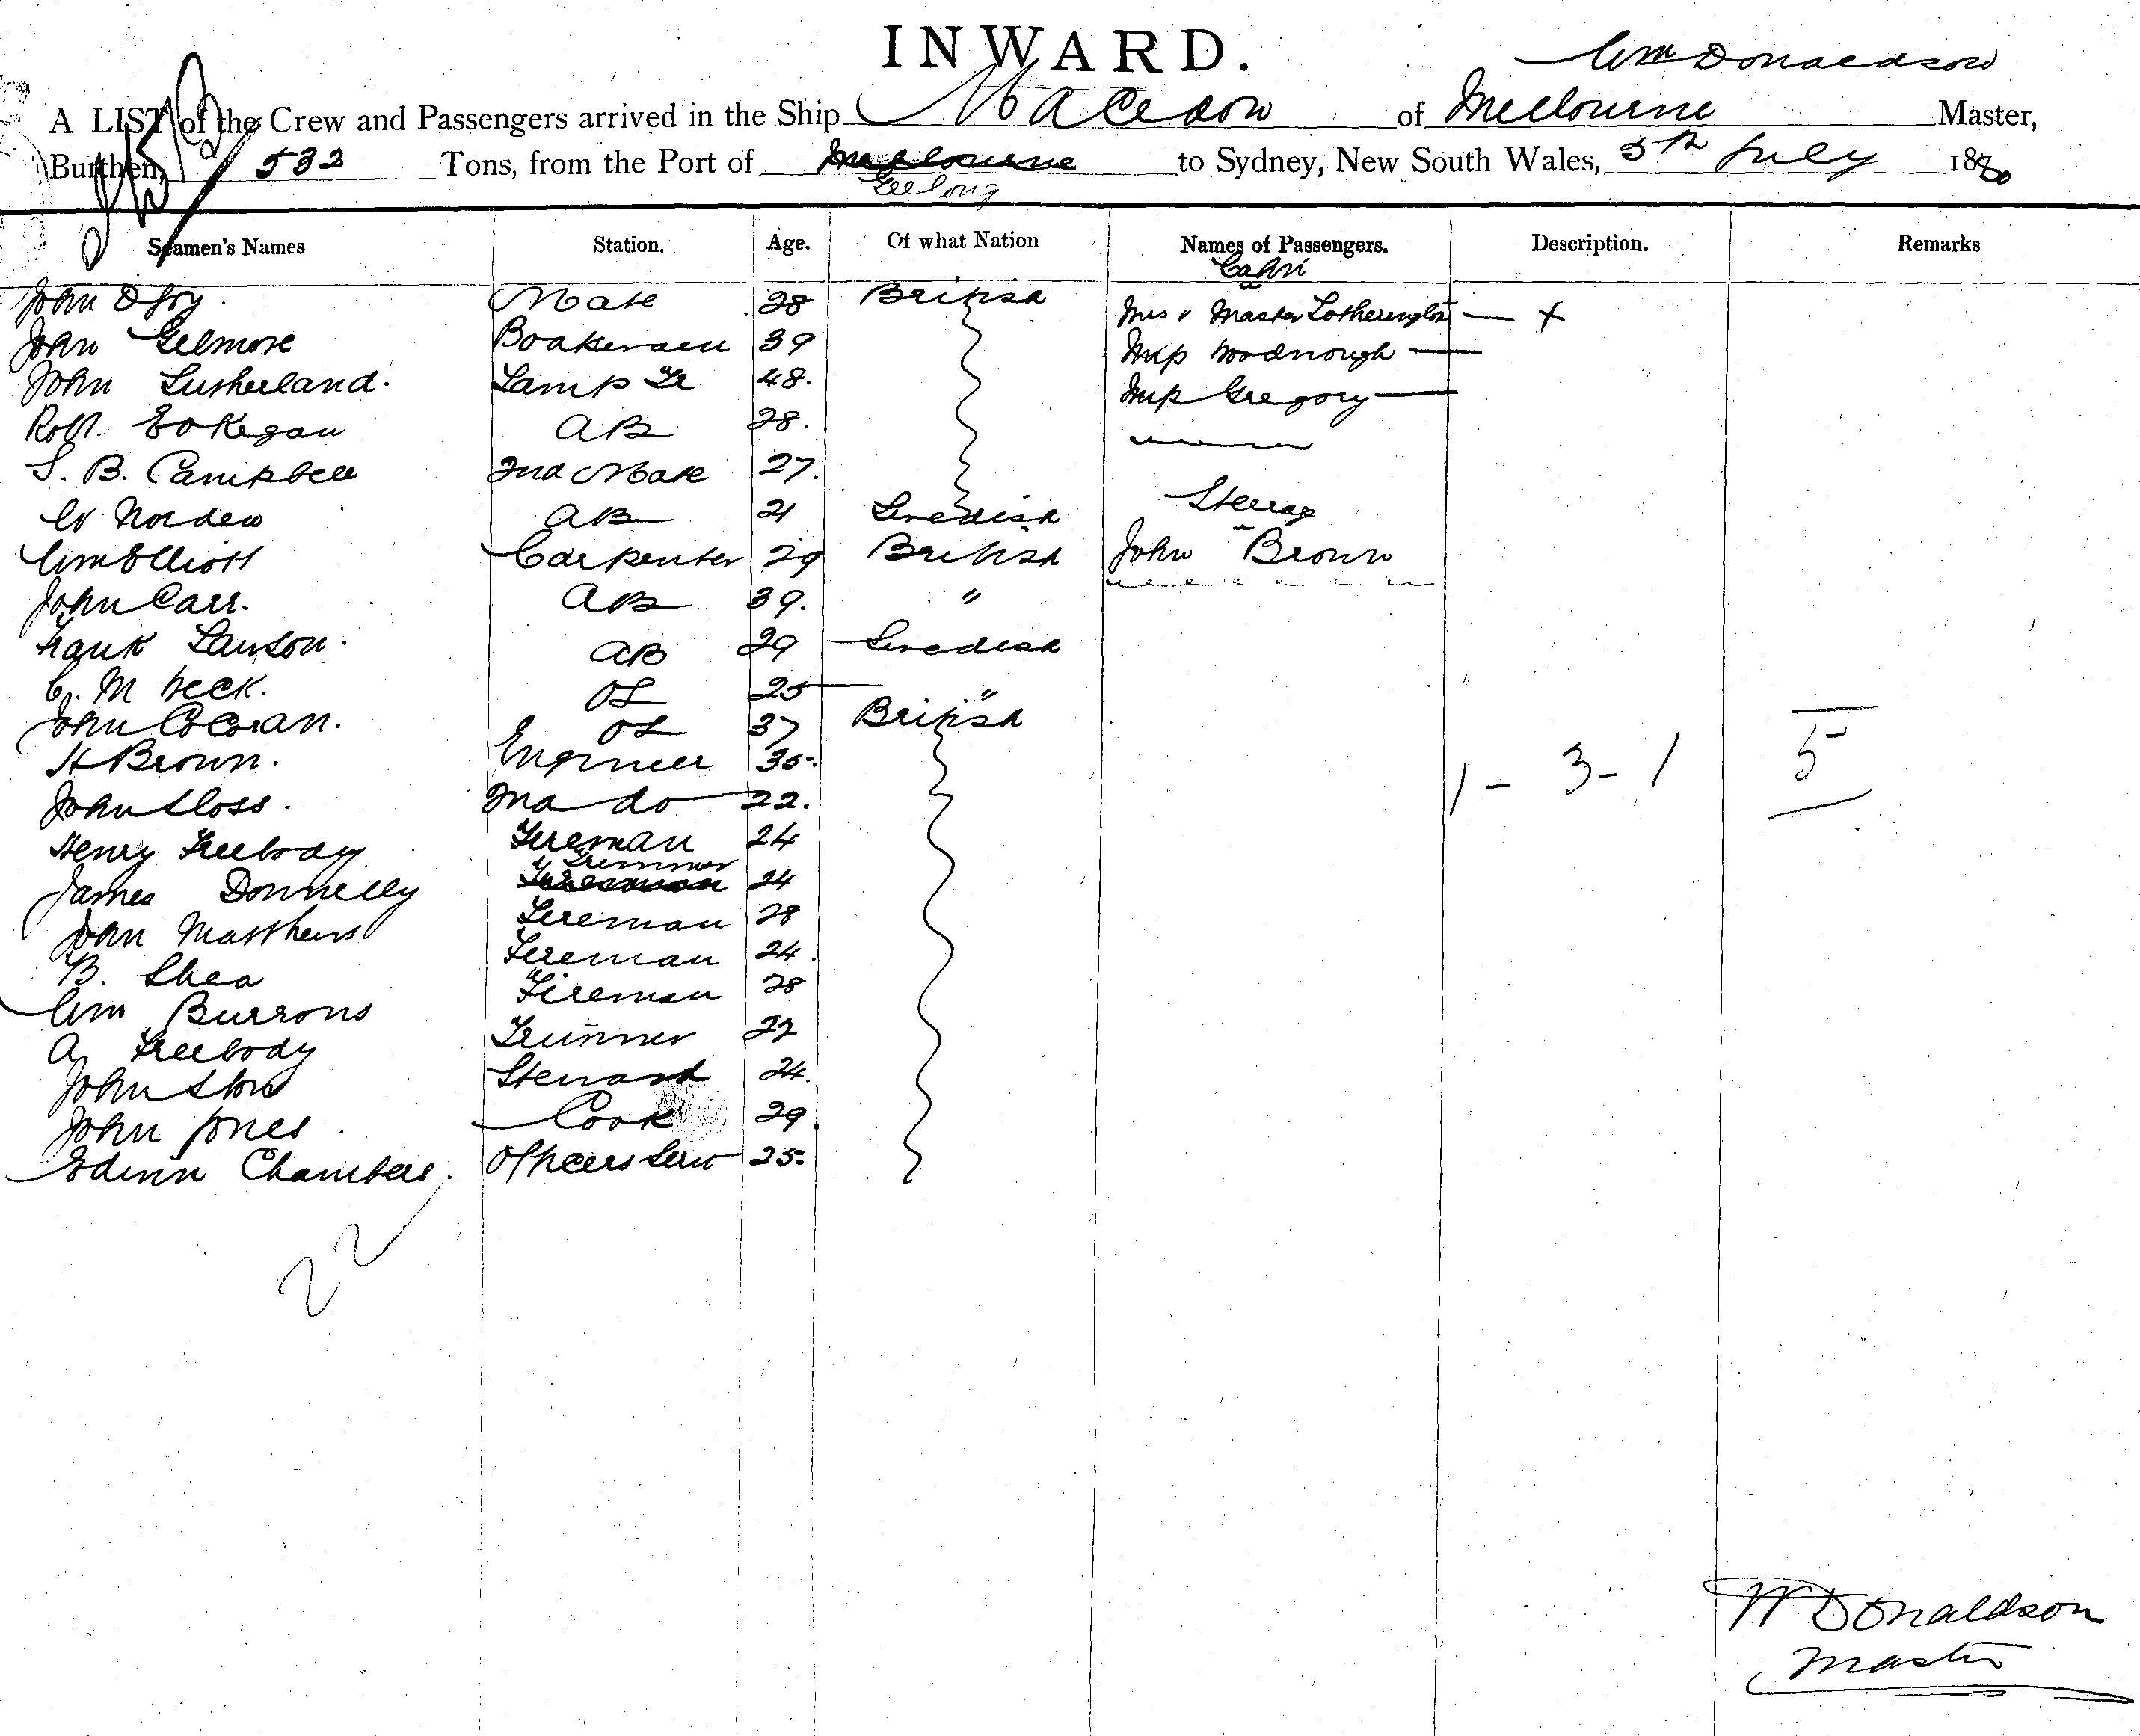 INWARD.
Wm Donaldson
A LIST of the Crew and Passengers arrived in the Ship Macedon of Melbourne Master,
Burthen, 532 Tons, from the Port of Melbourne to Sydney, New South Wales, 5th July 1880
Geelong
Seamen's Names Station. Age. Of what Nation Names of Passengers. Description. Remarks
Cabin
John Mate 28 British Mrs & Master Lotherington — x
John Gilmore Boatswain 39 Miss Woodnough —
John Sutherland. Lamp Tr 48. Miss Gregory —
Robt. AB 28.
S. B. Campbell 2nd Mate 27.
W Norden AB 21 Swedish Steerage
Wm Elliott Carpenter 29 British John Brown
John Carr. AB 39. "
Frank Lawson. AB 29 Swedish
C. M Beck. OS 25 "
John Cocoran. OS 37 British
H Brown. Engineer 35. 1 - 3 - 1 5
John Sloss. 2nd do 22.
Henry Freebody Fireman 24
Trimmer
James Donnelly Fireman 24
John Matthews Fireman 28
B. Shea Fireman 24.
Wm Burrows Fireman 28
A Freebody Trimmer 22
John Steward 24.
John Jones. Cook 29.
Edwin Chambers. Officers Serv 25.
22
W Donaldson
Master